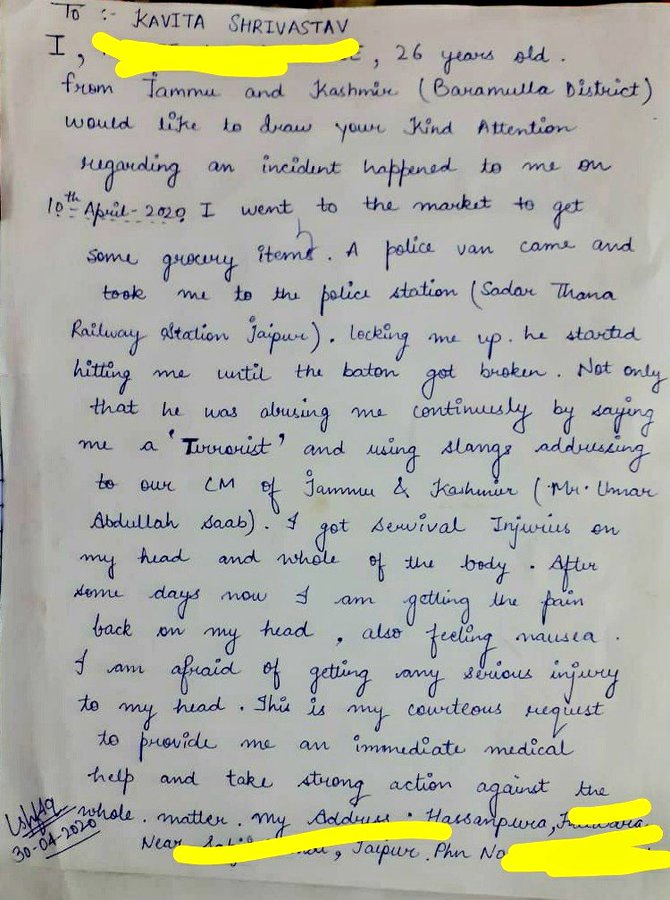 To :- KAVITA SHRIVASTAV
I, , 26 years old.
from Jammu and Kashmir (Baramulla District)
would like to draw your Kind Attention
regarding an incident happened to me on
10th April-2020 I went to the market to get
some grocery items. A police van came and
took me to the police station (Sadar Thana
Railway Station Jaipur). locking me up. he started
hitting me until the baton got broken. Not only
that he was abusing me continuesly by saying
me a 'Terrorist' and using slangs addressing
to our CM of Jammu & Kashmir (Mr. Umar
Abdullah saab). I got servival Injuries on
my head and whole of the body. After
some days now I am getting the pain
back on my head, also feeling nausea.
I am afraid of getting any serious injury
to my head. This is my courteous request
to provide me an immediate medical
help and take strong action against the
whole. matter. My Address: Hassanpura,
Near , Jaipur. Phn No
Ishfaq
30-04-2020